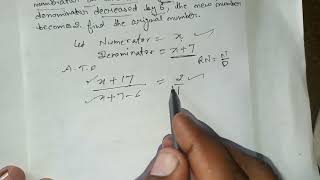 denominator decreased by 6, the new number
becomes 2, find the original number.
Let Numerator = x
Denominator = x+7
RN = N/D
A.T.Q
x + 17 = 2
x + 7 - 6 1